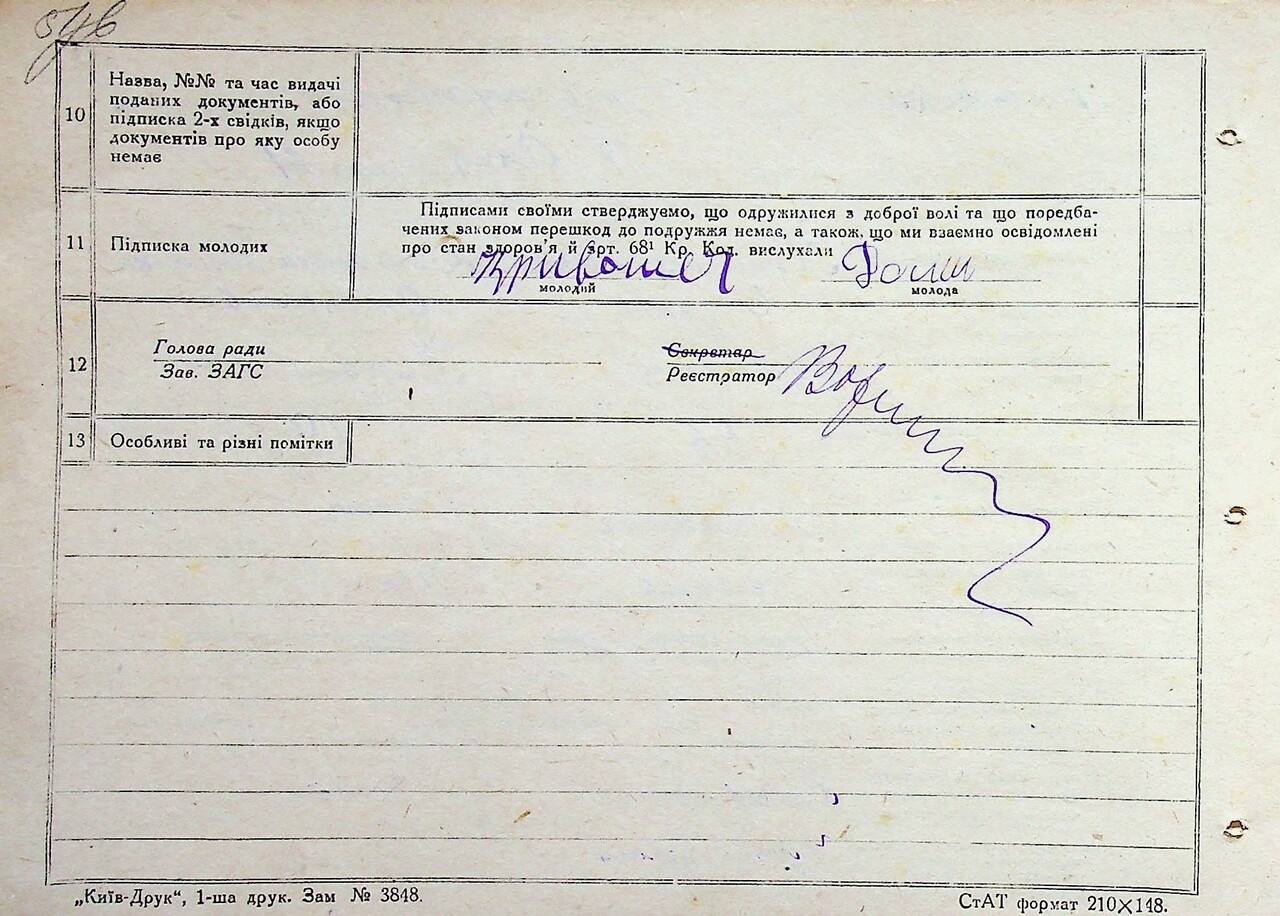 10
Назва, №№ та час видачі
поданих документів, або
підписка 2-х свідків, якщо
документів про яку особу
немає
11
Підписка молодих
Підписами своїми стверджуємо, що одружилися з доброї волі та що передба-
чених законом перешкод до подружжя немає, а також, що ми взаємно освідомлені
про стан здоров'я й арт. 68¹ Кр. Код. вислухали
молодий
молода
12
Голова ради
Зав. ЗАГС
Секретар
Реєстратор
13
Особливі та різні помітки
„Київ-Друк“, 1-ша друк. Зам № 3848.
СтАТ формат 210×148.